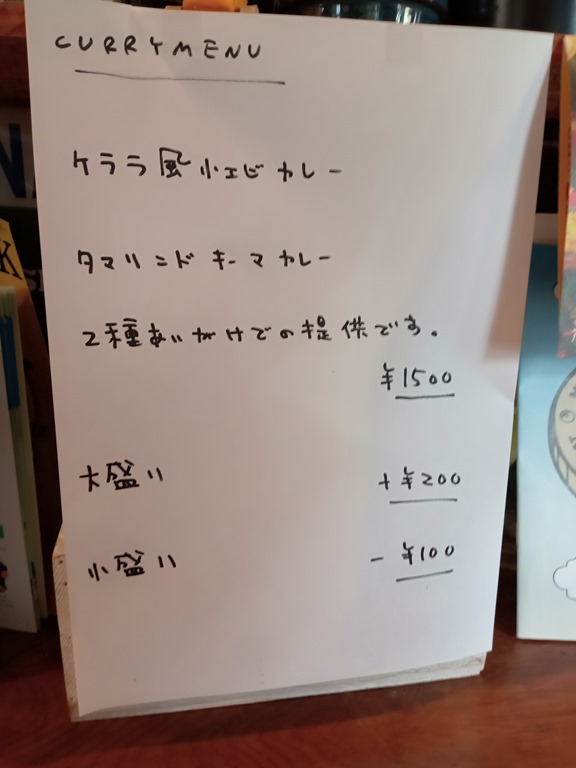 CURRY MENU
ケララ風小エビカレー
タマリンドキーマカレー
2種あいがけでの提供です。
¥1500
大盛り +¥200
小盛り -¥100